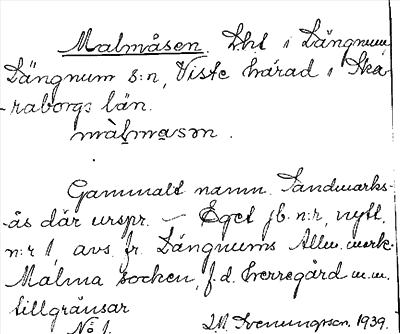 Malmåsen. Lht i Längnum,
Längnum s:n, Viste härad i Ska-
raborgs län.
màl̥masən.
Gammalt namn. Sandmarks-
ås där urspr. – Eget jb. n:r, nytt.
n:r 1, avs. fr. Längnums Allm. mark.
Malma socken, f.d. herregård m.m.
tillgränsar
No 1. Sveningsson 1939.